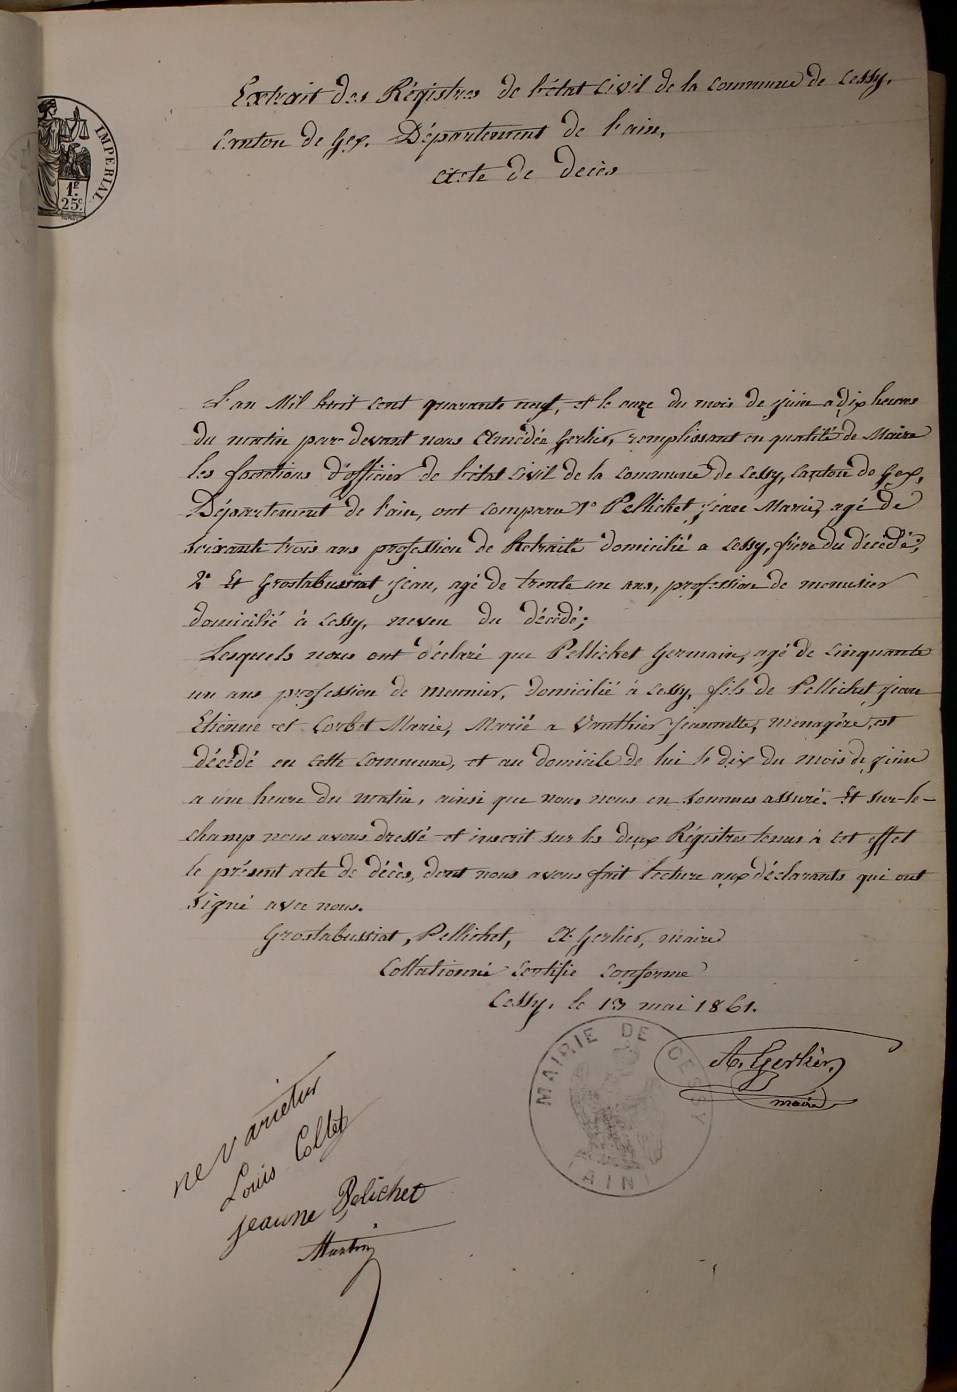 Extrait des Régistres de l'état Civil de la Commune de Cessy.
Canton de Gex. Département de l'ain.
Acte de décès
IMPERIAL
1F.
25c.
L'an Mil huit cent quarante neuf, et le onze du mois de juin a dix heures
du matin par devant nous Amédée Gerlier, remplissant en qualité de Maire
les fonctions d'officier de l'état civil de la commune de Cessy, canton de Gex,
Département de l'ain, ont comparu 1º Pellichet jean Marie, agé de
soixante trois ans profession de Retraité domicilié a Cessy, frère du décédé;
2º Et Grostabussiat jean, agé de trente un ans, profession de menusier
domicilié à Cessy, neveu du décédé;
Lesquels nous ont déclaré que Pellichet Germain, agé de cinquante
un ans profession de meunier, domicilié à Cessy, fils de Pellichet jean
Etienne et Corbet Marie, Marié a Vauthier jeannette, menagère, est
décédé en cette commune, et au domicile de lui le dix du mois de juin
a une heure du matin, ainsi que nous nous en sommes assuré. Et sur-le-
champ nous avons dressé et inscrit sur les deux Régistres tenus à cet effet
le présent acte de décès, dont nous avons fait lecture aux déclarants qui ont
signé avec nous.
Grostabussiat, Pellichet, A. Gerlier, maire
Collationné certifié conforme
Cessy, le 13 mai 1861.
A. Gerlier,
maire
MAIRIE DE CESSY
(AIN)
ne varietur
Louis Collet
jeanne Pelichet
Martin